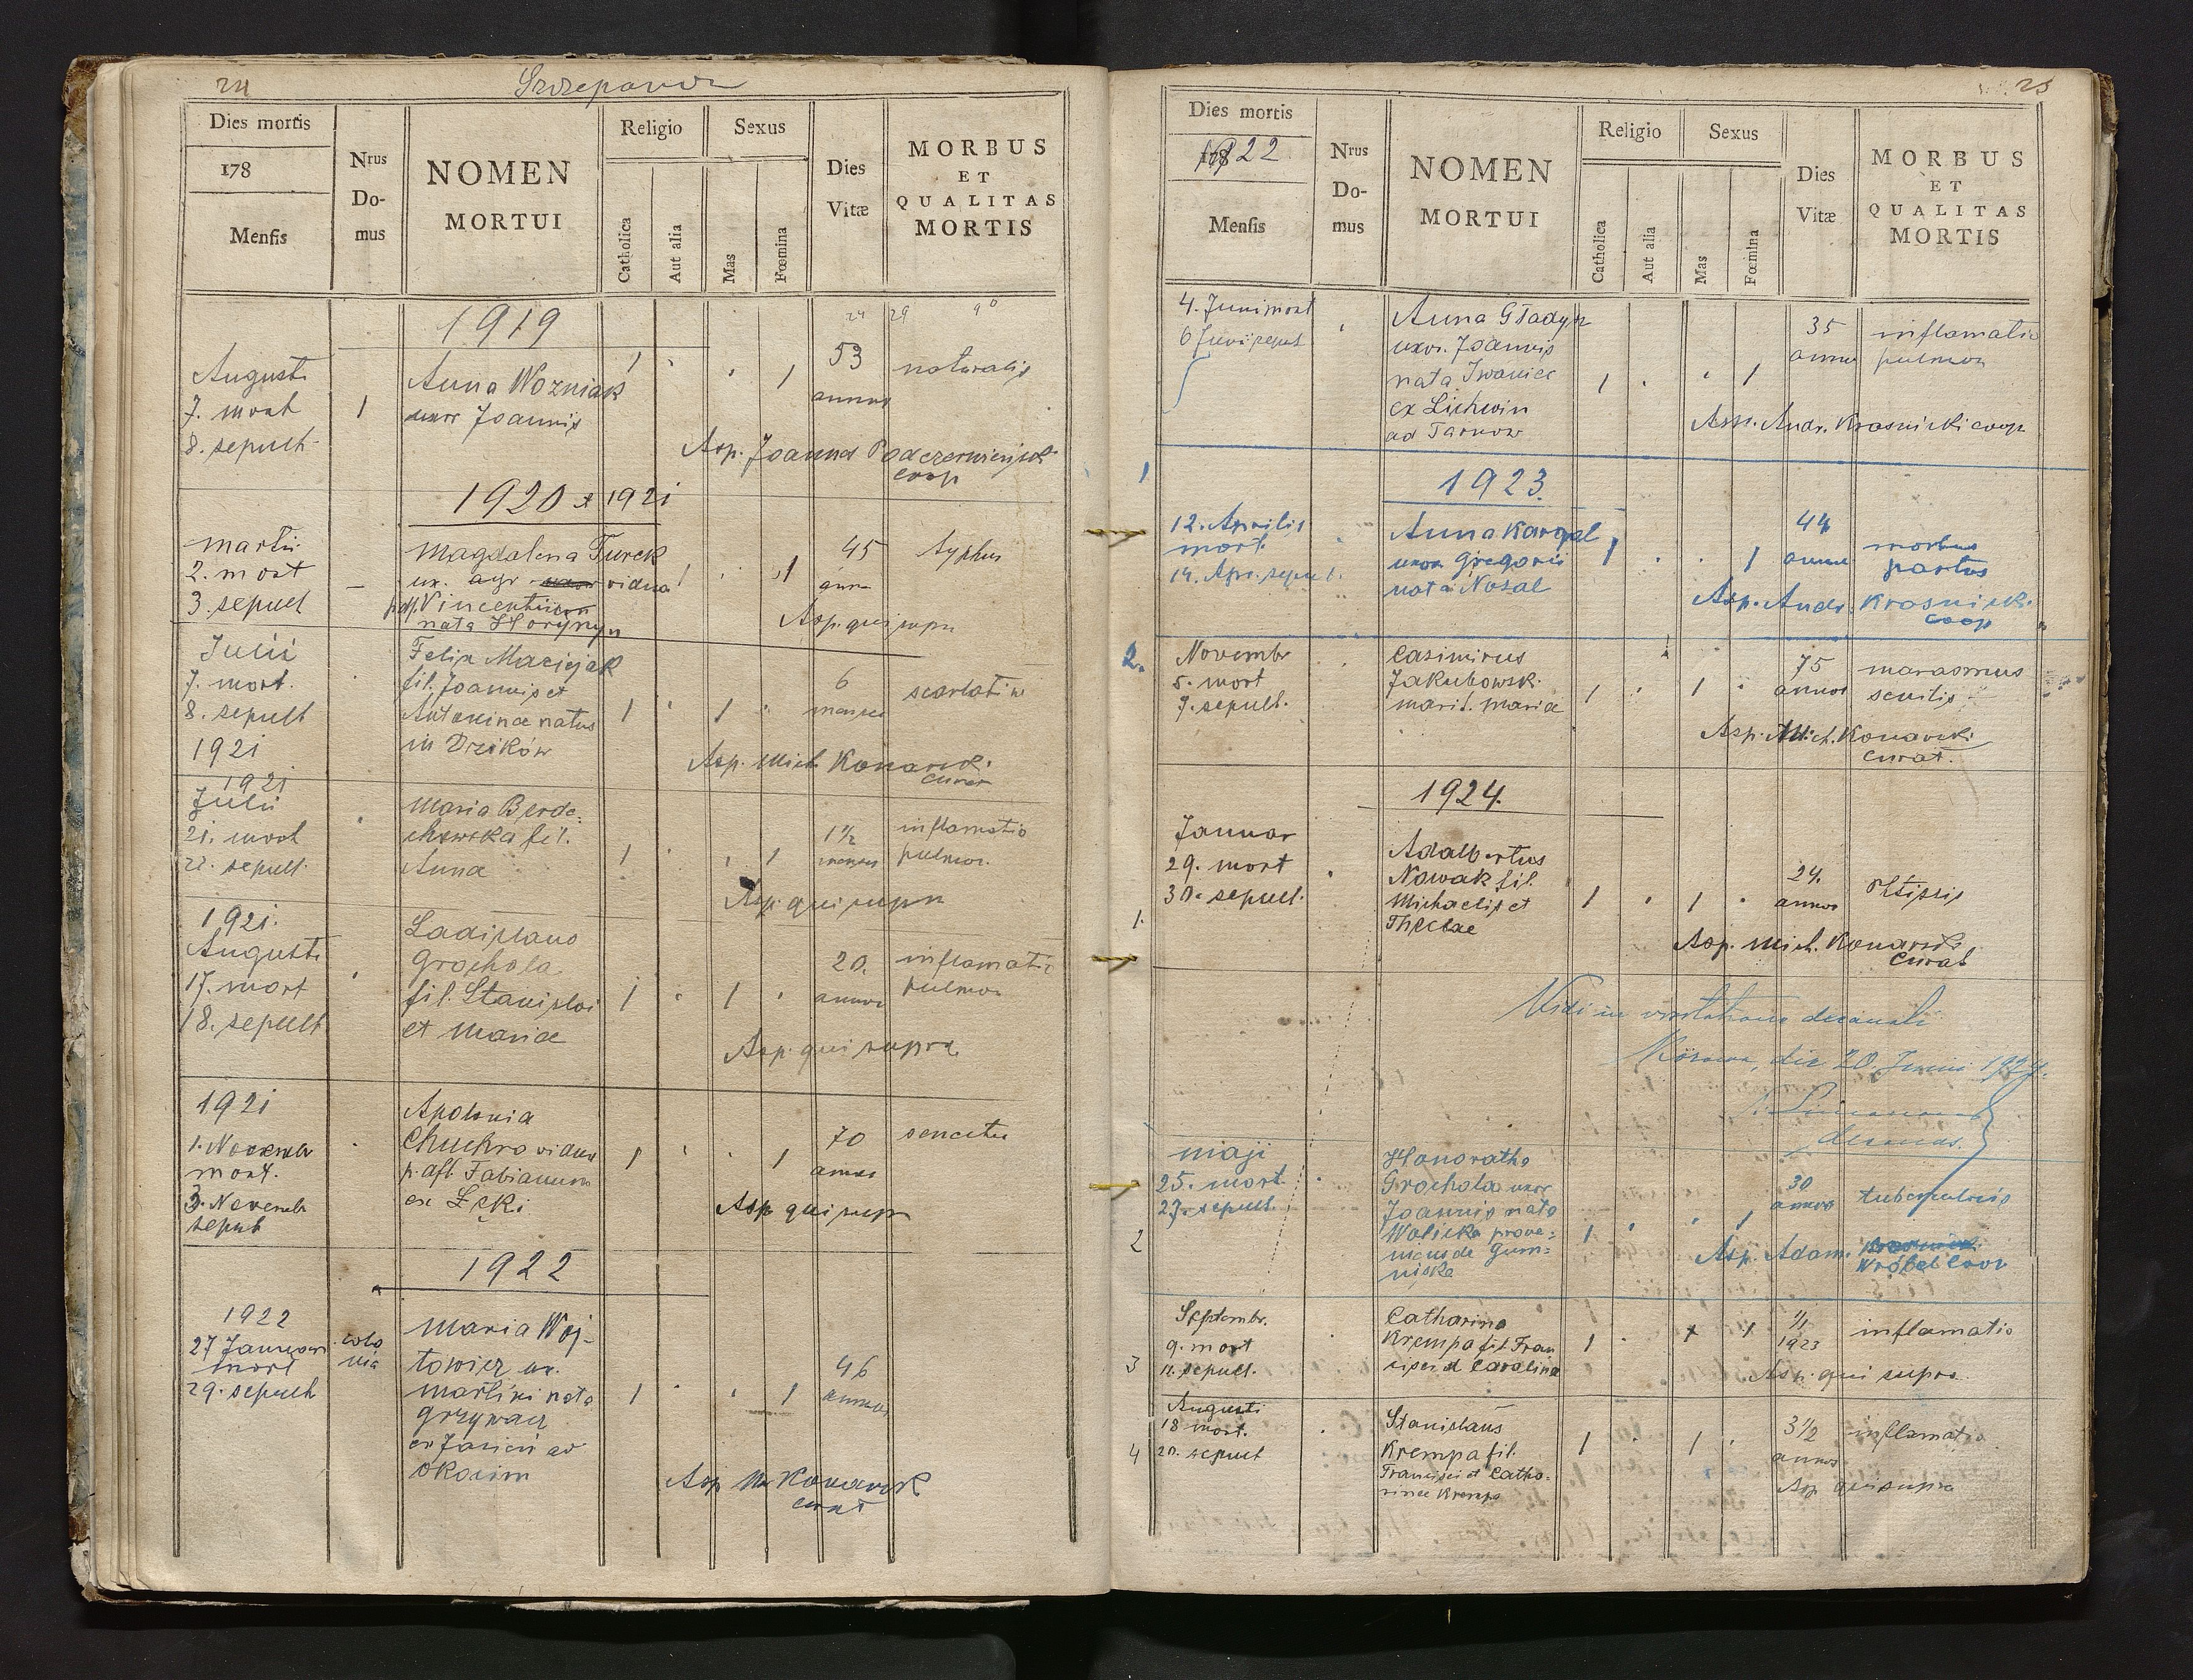 24
Dies mortis
178
Mensis
Nrus
Do-
mus
NOMEN
MORTUI
Religio
Catholica
Aut alia
Sexus
Mas
Fœmina
Dies
Vitæ
MORBUS
ET
QUALITAS
MORTIS
1919
Augusti
7. mort
8. sepult
1
Anna Wozniak
uxor Joannis
1
1
53
annos
naturalis
Asp. Joannes
coop
1920 + 1921
Martii
2. mort
3. sepult
Magdalena Turek
vidua
Vincentium
nata
1
1
45
typhus
Asp. qui supra
Julii
7. mort.
8. sepult
1921
Felix Maciejak
fil. Joannis et
Antonina natus
in
1
1
6
menses
Asp. Mich Konarski
1921
Julii
21. mort
22. sepult.
Maria
fil.
Anna
1
1
1 1/2
inflamatio
pulmon.
Asp. qui supra
1921.
Augusti
17. mort
18. sepult
Ladislaus
Grochola
fil. Stanislai
et Mariae
1
1
20.
annos
inflamatio
pulmon
Asp. qui supra
1921
1. November
mort.
3. Novemb
sepult
Apolonia
vidua
p. aft. Fabianum
ex Łęki
1
1
70
annos
Asp qui supr
1922
1922
27 Januar
mort
29. sepult
colo
nia
Maria Woj-
towicz ux.
Martini nata
Grzywacz
ex Jasień ad
1
1
46
annos
Asp M Konarsk
curat
25
Dies mortis
1922
Mensis
Nrus
Do-
mus
NOMEN
MORTUI
Religio
Catholica
Aut alia
Sexus
Mas
Fœmina
Dies
Vitæ
MORBUS
ET
QUALITAS
MORTIS
4. Juni mort
6 Juni sepult
Anna Gładysz
uxor. Joannis
nata Iwaniec
ex Lichwin
ad Tarnow
1
1
35
annos
inflamatio
pulmon
Asp. Andr. Krasnicki coop
1923.
1
12. Aprilis
mort.
14. Apr. sepult.
Anna Kargol
uxor Gregorii
nata Nosal
1
1
44
annos
morbus
partus
Asp. Andr Krasnicki
coop
2.
Novembr
5. mort
7. sepult.
Casimirus
Jakubowski
marit. Maria
1
1
75
annos
marasmus
senilis
Asp. Mich. Konarski
curat.
1924.
1.
Januar
29. mort
30. sepult.
Adalbertus
Nowak fil.
Michaelis et
Theclae
1
1
24.
annos
Asp. Mich. Konarski
curat
Vidi in visitatione decanali
die 20. Junii 1924.
decanus.
2
Maji
25. mort
27. sepult.
Honoratha
Grochola uxor
Joannis nata
Walicka prove-
niens de Gum-
niska
1
1
30
annos
tuberculosis
Asp. Adam.
Wróbel coop
3
Septembr.
9. mort
11. sepult.
Catharina
Krempa fil Fran
cisci et Carolina
1
1
1/1
1923
inflamatio
Asp. qui supra
4
Augusti
18 mort.
20. sepult
Stanislaus
Krempa fil.
Francisci et Catha-
rinae Krempa
1
1
3 1/2
annos
inflamatio
Asp qui supra